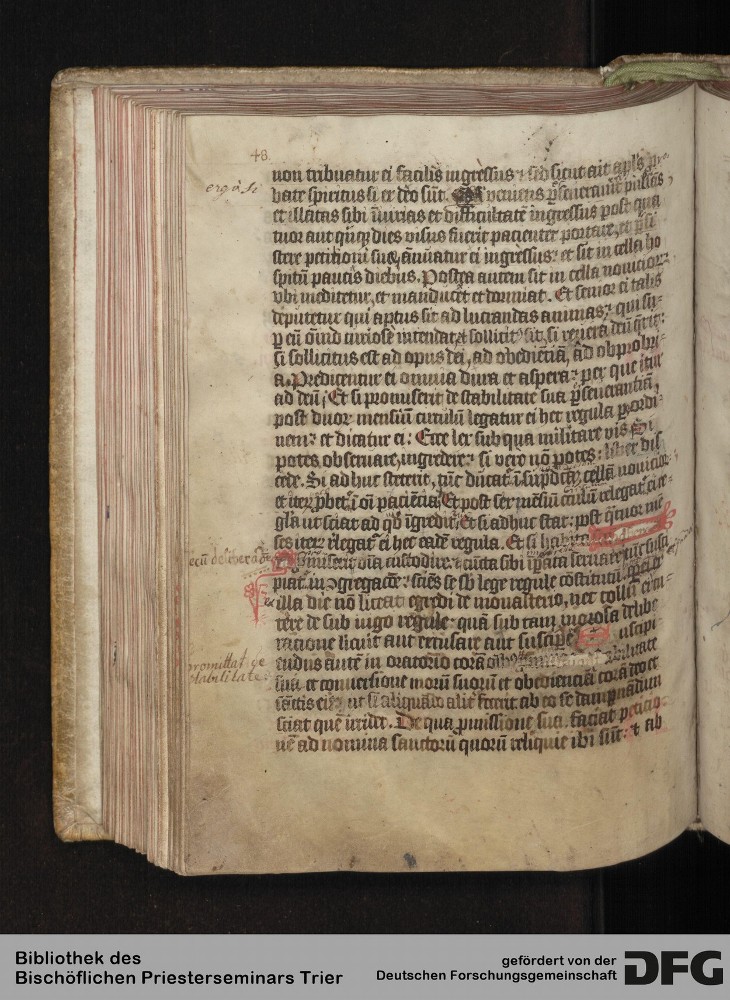 48.
non tribuatur ei facilis ingressus: sed sicut ait apls pro
ergo si
bate spiritus si ex deo sūt. veniens ꝑseueraūit pulsās
et illatas sibi iniurias et difficultatē ingressus post qua
tuor aut qnqꝫ dies visus fuerit pacienter portare, et ꝑsi
stere petitioni sue, ānuatur ei ingressus: et sit in cella ho
spitū paucis diebus. Postea autem sit in cella nouicior
vbi meditetur, et manducet et dormiat. Et senior ei talis
deputetur qui aptus sit ad lucrandas animas: qui su
ꝑ eū oīno curiose intendat et sollicit sit, si reuera deū q̄rit:
si sollicitus est ad opus dei, ad obediēciā, ad obprobri
a. Predicentur ei omnia dura et aspera: per que itur
ad deū. Et si promiserit de stabilitate sua ꝑseuerantiā,
post duor mensiū circulū legatur ei hec regula ꝑ ordi
nem: et dicatur ei: Ecce lex sub qua militare vis. Si
potes obseruare, ingredere: si vero nō potes: liber dis
cede. Si adhuc steterit, tūc ducat ī supdcām cellā nouicior
et iteꝝ ꝓbet ī oī paciēcia. Et post sex mēsiū circulū relegat ei re
gla ut sciat ad qd īgredit. Et si adhuc stat: post qtuor mē
ses iteꝝ relegat ei hec eadē regula. Et si habita
ecū deliberacōe
miserit oīa custodire et cūcta sibi īpāta seruare tūc susci
piat in ꝯgregacōe: sciēs se sb lege regule cōstitutū
illa die nō liceat egredi de monasterio, nec collū excu
tere de sub iugo regule: quā sub tam morosa delibe
racione licuit aut recusare aut suscipe. Suscipi
endus autē in oratorio corā stabilitate
promittat de
stabilitate
sua et conuersione morū suorū et obedienciā corā deo et
sanctis eius ut si aliquādo alit fecerit ab eo se dampnādum
sciat quē irridet. De qua ꝓmissione sua faciat peticio
nē ad nomina sanctorū quorū reliquie ibi sūt: et ab
Bibliothek des
Bischöflichen Priesterseminars Trier
gefördert von der
Deutschen Forschungsgemeinschaft
DFG